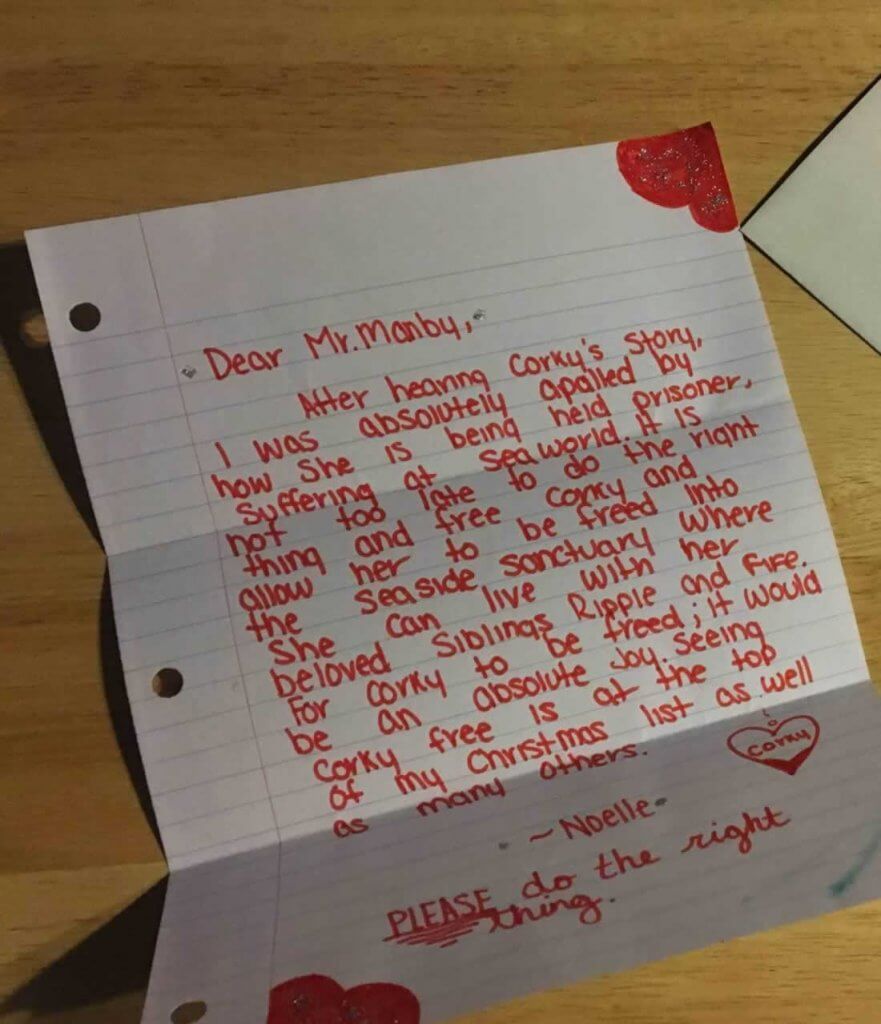 Dear Mr. Manby,
After hearing Corky's story,
I was absolutely apalled by
how she is being held prisoner,
suffering at seaworld. it is
not too late to do the right
thing and free corky and
allow her to be freed into
the seaside sanctuary where
she can live with her
beloved siblings Ripple and Fife.
For corky to be freed; it would
be an absolute joy. seeing
corky free is at the top
of my Christmas list as well
as many others.
corky
~Noelle
PLEASE do the right
thing.